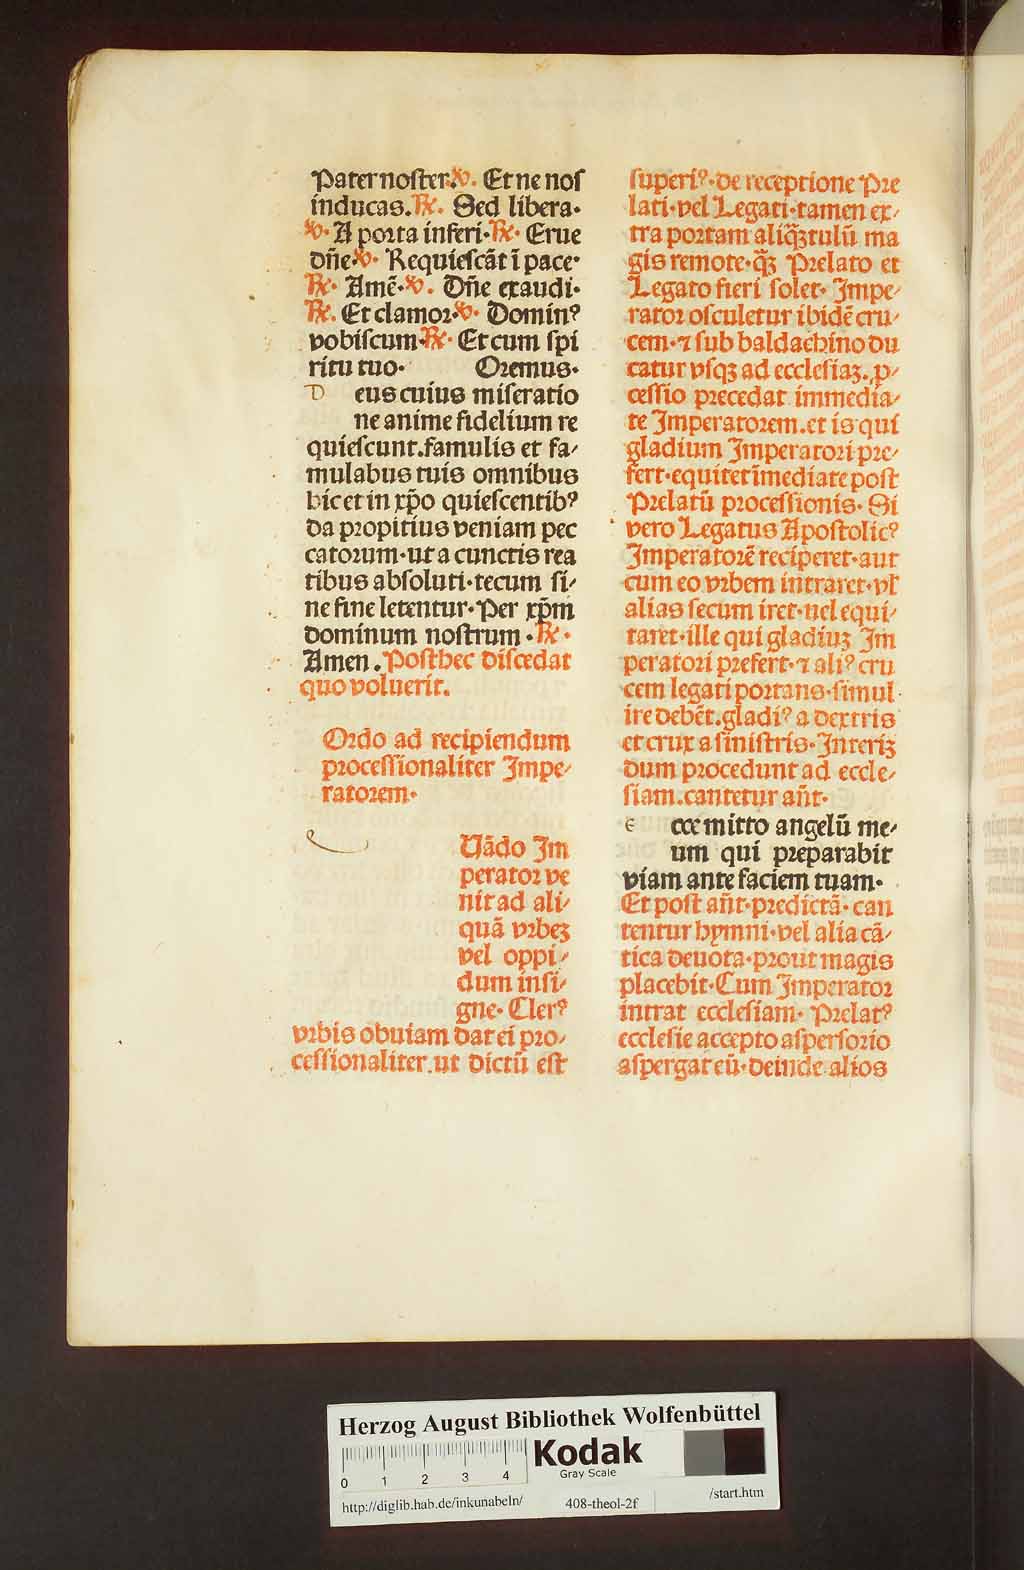 Pater noſter. ℣. Et ne nos
inducas. ℟. Sed libera.
℣. A porta inferi. ℟. Erue
dñe. ℣. Requieſcãt ĩ pace.
℟. Amẽ. ℣. Dñe exaudi.
℟. Et clamor. ℣. Dominꝰ
vobiſcum. ℟. Et cum ſpi
ritu tuo. Oremus.
D eus cuius miſeratio
ne anime fidelium re
quieſcunt. famulis et fa⸗
mulabus tuis omnibus
hic et in xp̃o quieſcentibꝰ
da propitius veniam pec
catorum. ut a cunctis rea
tibus abſoluti. tecum ſi⸗
ne fine letentur. Per xp̃m
dominum noſtrum. ℟.
Amen. Poſt hec diſcedat
quo voluerit.
Ordo ad recipiendum
proceſſionaliter Impe⸗
ratorem.
Uãdo Im
perator ve
nit ad ali⸗
quã vrbeꝫ
vel oppi⸗
dum inſi⸗
gne. Clerꝰ
vrbis obuiam dat ei pro⸗
ceſſionaliter. ut dictũ eſt
ſuperiꝰ. de receptione Pre
lati. vel Legati. tamen ex⸗
tra portam aliq̃ꝫtulũ ma
gis remote. q̃ꝫ Prelato et
Legato fieri ſolet. Impe⸗
rator oſculetur ibidẽ cru⸗
cem. ⁊ ſub baldachino du
catur vſqꝫ ad eccleſiaꝫ. ꝓ⸗
ceſſio precedat immedia⸗
te Imperatorem. et is qui
gladium Imperatori pre⸗
fert. equitet ĩmediate poſt
Prelatũ proceſſionis. Si
vero Legatus Apoſtolicꝰ
Imperatorẽ reciperet. aut
cum eo vrbem intraret. vl̃
alias ſecum iret. uel equi⸗
taret. ille qui gladiuꝫ Im
peratori prefert. ⁊ aliꝰ cru
cem legati portans. ſimul
ire debẽt. gladiꝰ a dextris
et crux a ſiniſtris. Interiꝫ
dum procedunt ad eccle⸗
ſiam. cantetur añt.
e cce mitto angelũ me⸗
um qui preparabit
viam ante faciem tuam.
Et poſt añt. predictã. can
tentur hymni. vel alia cã⸗
tica deuota. prout magis
placebit. Cum Imperator
intrat eccleſiam. Prelatꝰ
eccleſie accepto aſperſorio
aſpergat eũ. deinde alios
Herzog August Bibliothek Wolfenbüttel
Kodak
Gray Scale
0 1 2 3 4
http://diglib.hab.de/inkunabeln/ 408-theol-2f /start.htm